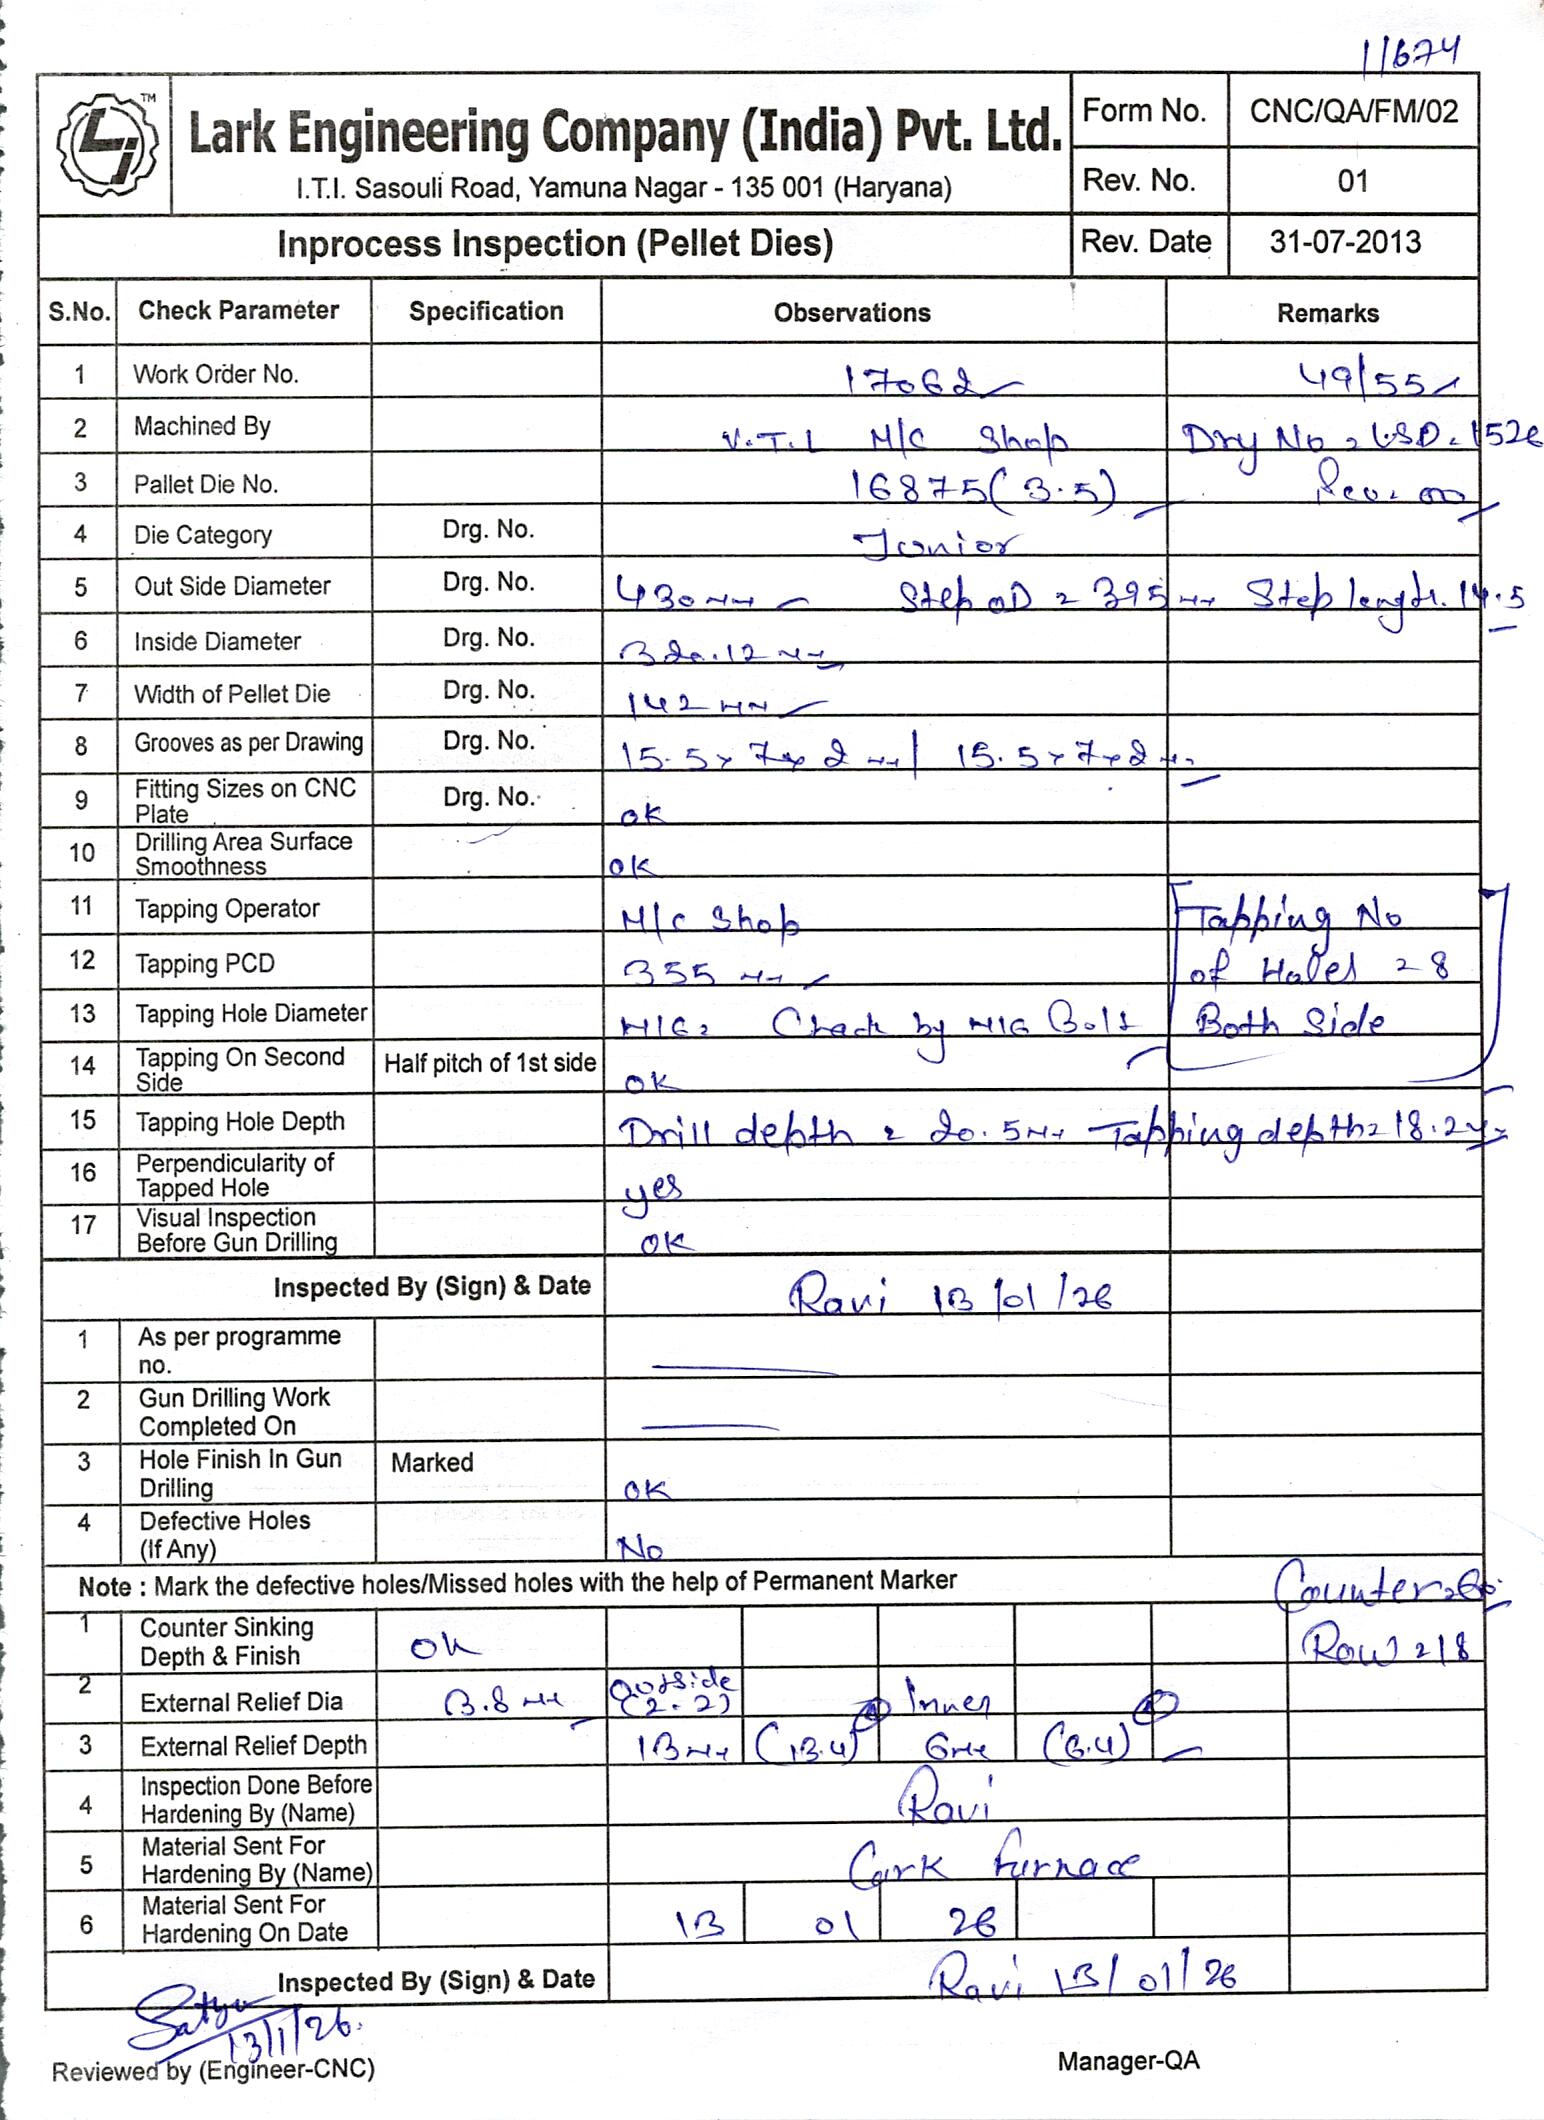 11674
TM
Lark Engineering Company (India) Pvt. Ltd.
I.T.I. Sasouli Road, Yamuna Nagar - 135 001 (Haryana)
Form No. CNC/QA/FM/02
Rev. No. 01
Inprocess Inspection (Pellet Dies) Rev. Date 31-07-2013
S.No. Check Parameter Specification Observations Remarks
1 Work Order No. 17062 49/55
2 Machined By V.T.L M/C Shop Drg No = LSD-1526
3 Pallet Die No. 16875(3.5) Rev. 00
4 Die Category Drg. No. Junior
5 Out Side Diameter Drg. No. 430 Step OD = 395 Step length. 14.5
6 Inside Diameter Drg. No. 320.12
7 Width of Pellet Die Drg. No. 142
8 Grooves as per Drawing Drg. No. 15.5x7x2 | 15.5x7x2
9 Fitting Sizes on CNC Plate Drg. No. OK
10 Drilling Area Surface Smoothness OK
11 Tapping Operator M/C Shop Tapping No
12 Tapping PCD 355 of Holes = 8
13 Tapping Hole Diameter M16= Check by M16 Bolt Both Side
14 Tapping On Second Side Half pitch of 1st side OK
15 Tapping Hole Depth Drill depth = 20.5 Tapping depth=18.2
16 Perpendicularity of Tapped Hole yes
17 Visual Inspection Before Gun Drilling OK
Inspected By (Sign) & Date Ravi 13/01/26
1 As per programme no.
2 Gun Drilling Work Completed On
3 Hole Finish In Gun Drilling Marked OK
4 Defective Holes (If Any) No
Note : Mark the defective holes/Missed holes with the help of Permanent Marker Counter=60
1 Counter Sinking Depth & Finish OK Row=18
2 External Relief Dia 3.8 Outside (2-2) Inner
3 External Relief Depth 13 (13.4) 6 (6.4)
4 Inspection Done Before Hardening By (Name) Ravi
5 Material Sent For Hardening By (Name) Lark furnace
6 Material Sent For Hardening On Date 13 01 26
Inspected By (Sign) & Date Ravi 13/01/26
Satya
13/1/26.
Reviewed by (Engineer-CNC) Manager-QA